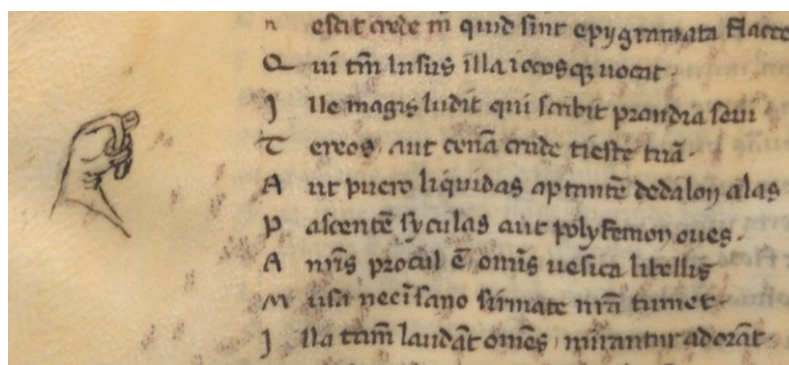 n escit crede m̄ quid sint epygramata flacce
Q ui tm̄ lusus illa iocosq; uocat
I lle magis ludit qui scribit prandia seui
T ereos, aut cenā crude tieste tuā.
A ut puero liquidas aptantē dedalon alas
P ascentē syculas aut polyfemon oues.
A nr̄is procul ē om̄is uesica libellis
M usa nec īsano sirmate nr̄a tumet.
I lla tam̄ laudāt om̄es, mirantur adorāt.